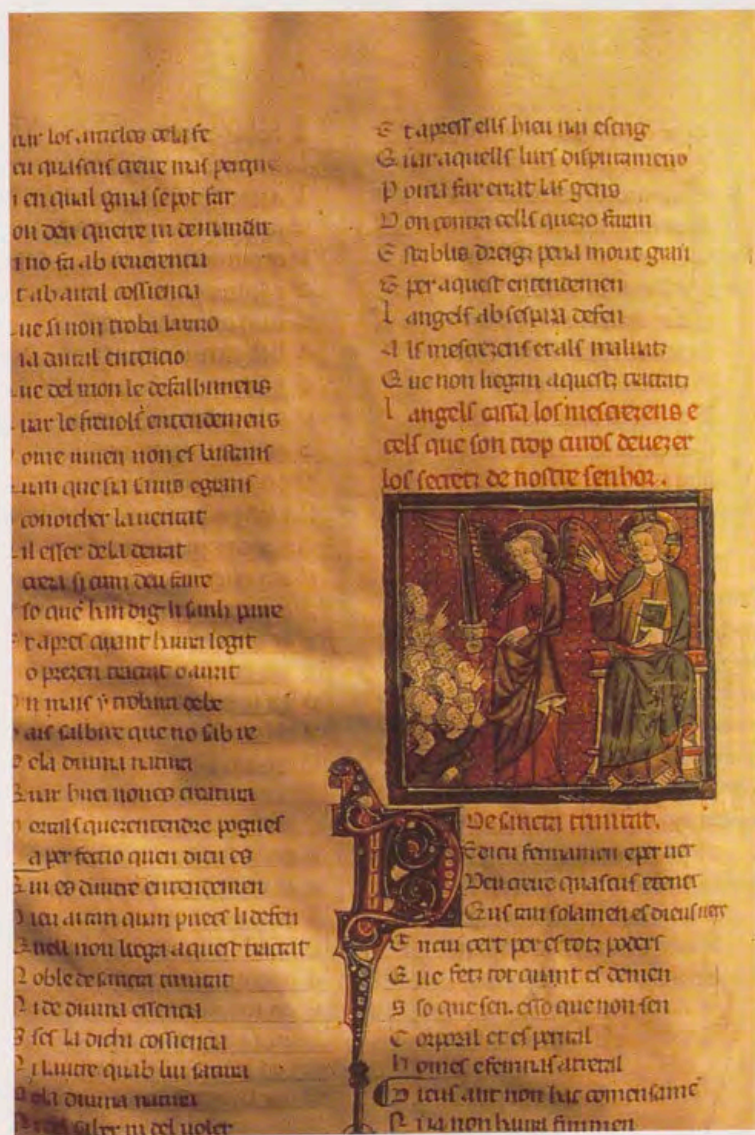 los articles de la fe
quascus creire mas perque
en qual guia se pot far
on deu querre ni demandar
no fa ab reverencia
ab aital cossiencia
ue si non troba la uo
aital entencio
ue del mon le defalhimens
uar le freuols entendemens
ome uiuen non es bastans
que sia sauis e grans
conoicher la ueritat
il esser de la deitat
creza si cum deu faire
so que han dig li sanh paire
t apres quant haura legit
o prezen tractat o auzit
n mais y trobara de be
ais salbire que no sab re
e la diuina natura
uar hieu non es creatura
ortals quez entendre pogues
a perfectio quen dieu es
ui es diuire entendemen
ieu aitan quan puesc li defen
uell non liega aquest tractat
N oble de sancta trinitat
N i de diuina essencia
S es la dicha cossiencia
N i lautre quab lui
ela diuina natura
saber ni del uoler
E t apres ells hieu nai escrig
Q uar aquells lurs disputamens
P oiria far errat las gens
D on contra cells quezo faran
E stablis dreigz pena mout gran
E per aquest entendemen
L angels ab sespaza defen
A ls mescrezens et als maluatz
Q ue non liegan aquestz tractatz
L angels cassa los mescrezens e
cels que son trop curos de uezer
los secretz de nostre senhor.
De sancta trinitat.
E dieu fermamen e per uer
Deu creire quascus e tener
Q us sai solamen es dieus uers
E n ciu cert per es totz poders
Q ue fetz tot quant es de men
S so que sen. e sso que non sen
C orporal et esperital
h omes e femnas atretal
D ieus aut non hac comensame
N i ia non haura finimen